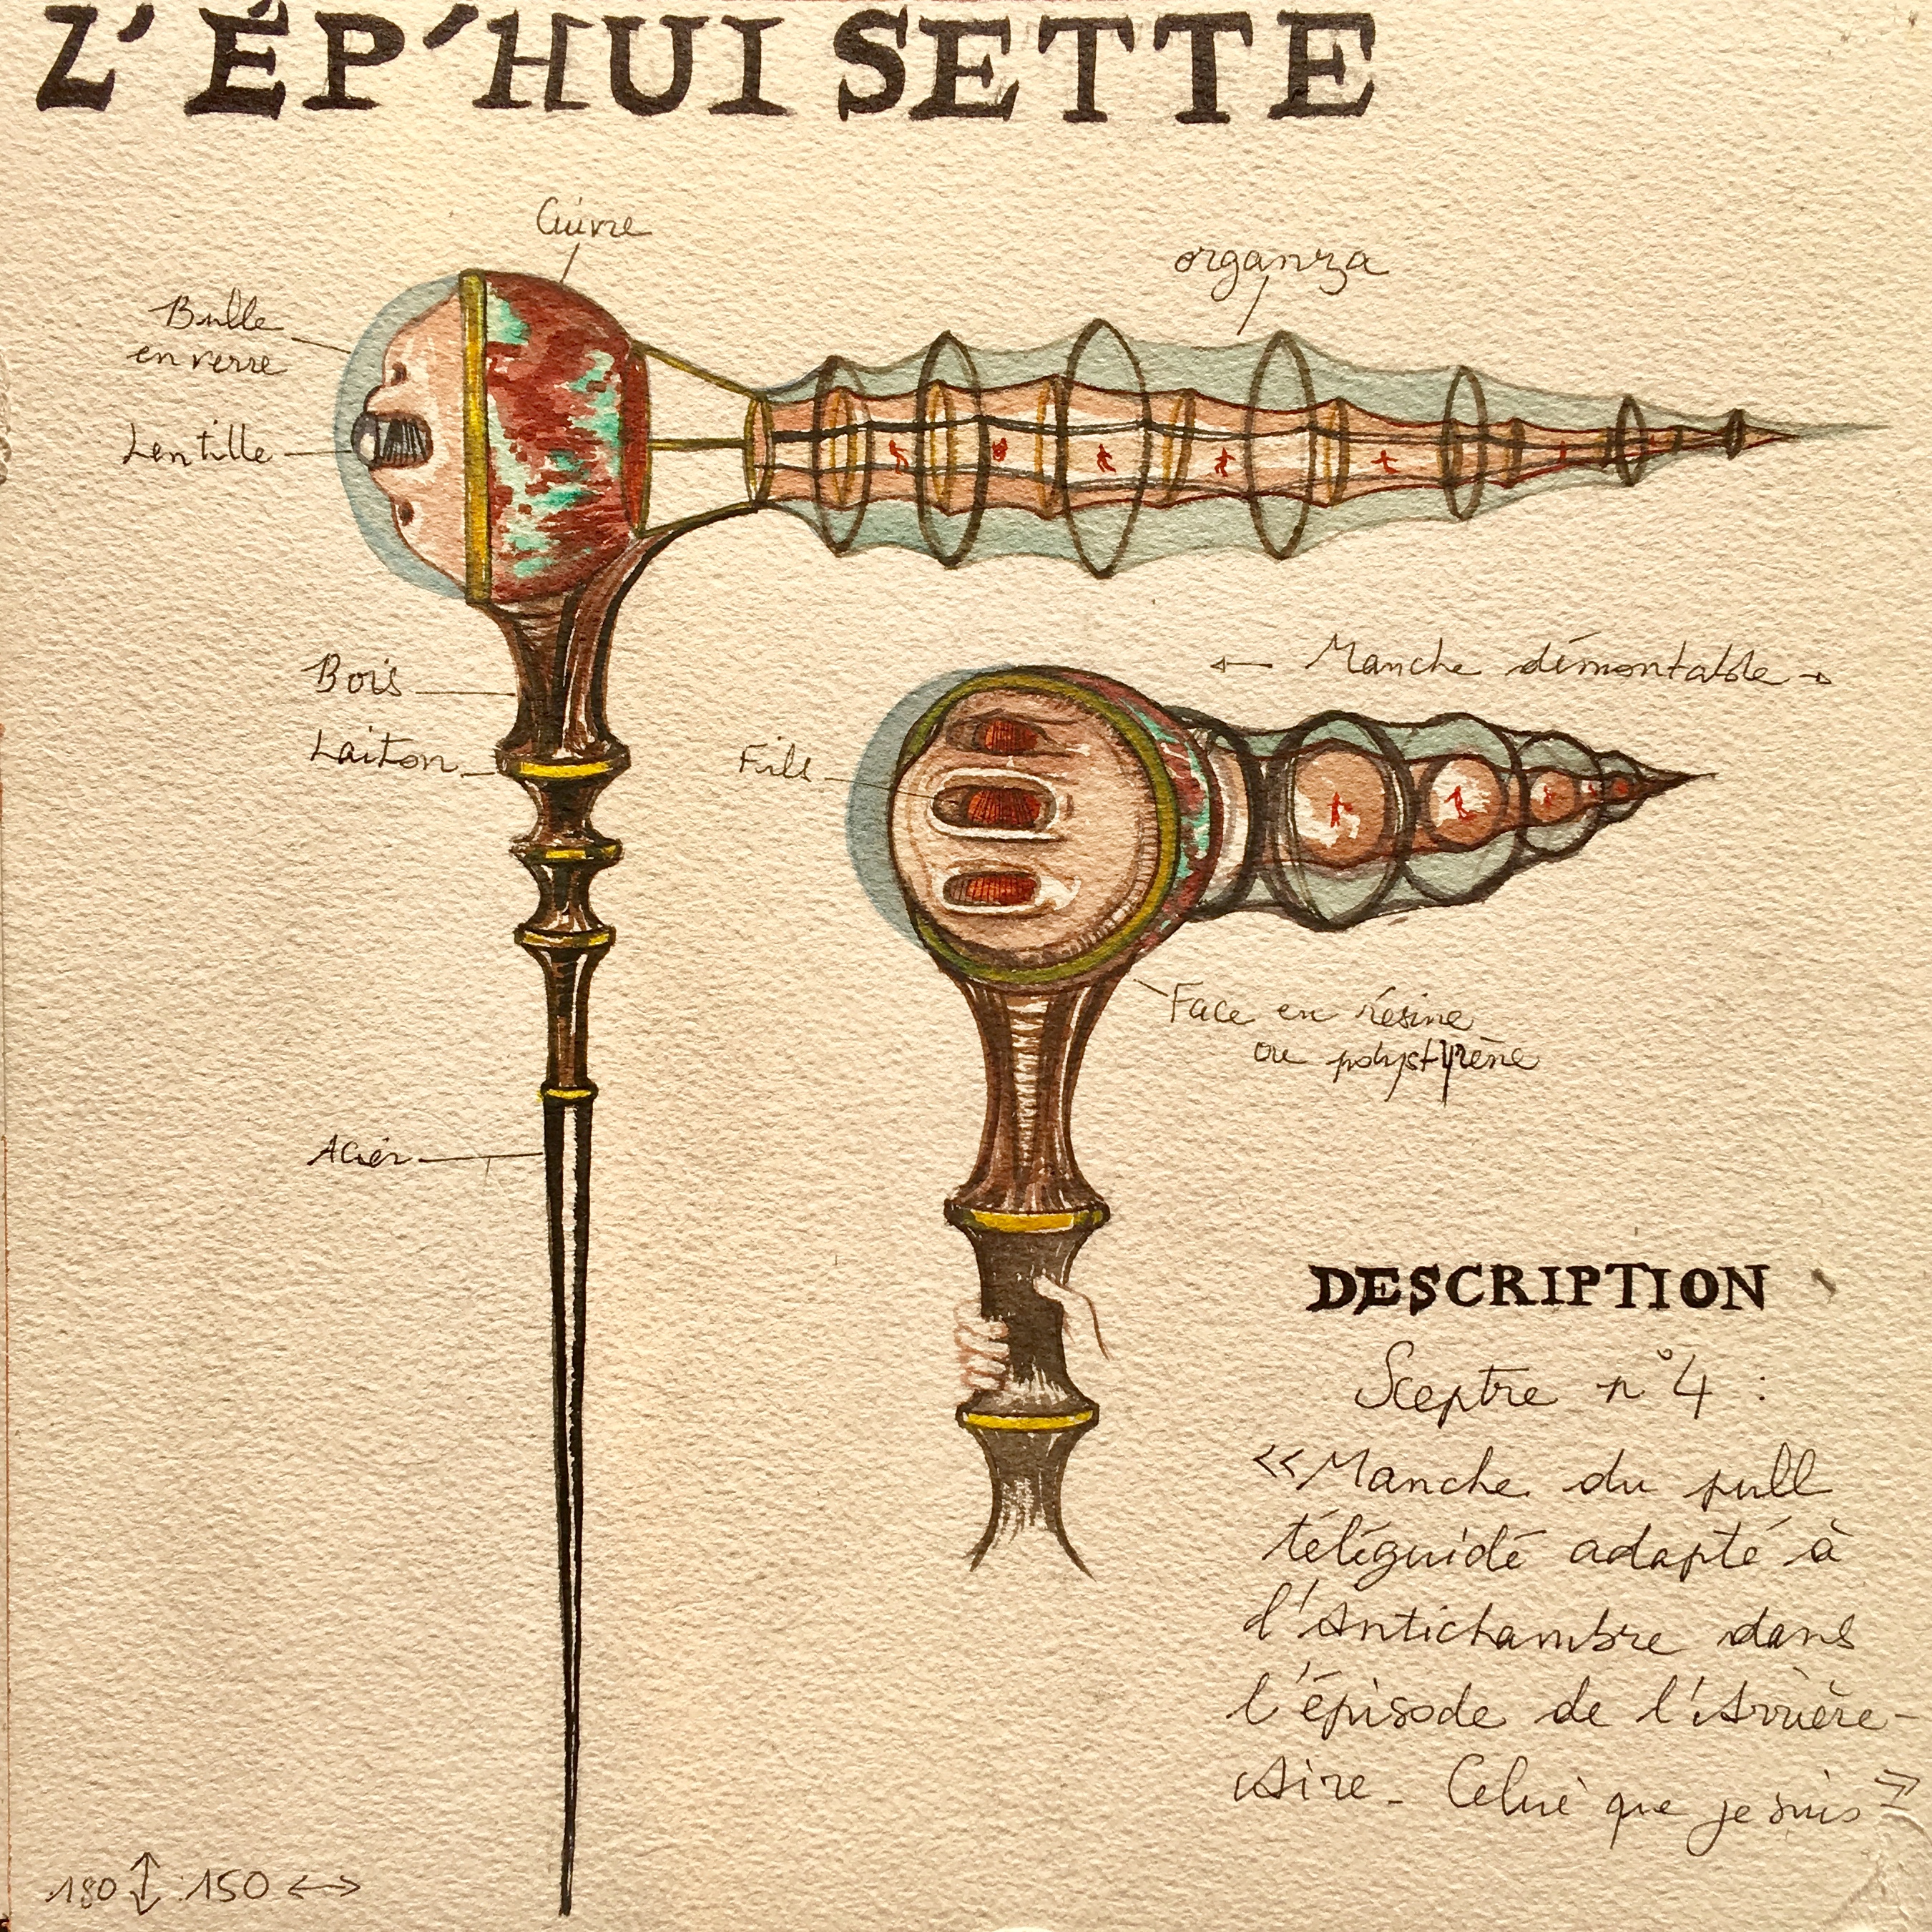 Z'ÉP'HUISETTE
Cuivre
organza
Bulle
en verre
Lentille
Bois
← Manche démontable →
Laiton
Fils
Face en résine
ou polystyrène
Acier
DESCRIPTION
Sceptre n°4 :
«Manche du pull
téléguidé adapté à
l'Antichambre dans
l'épisode de l'Arrière-
Aire - Celui que je suis»
180 ↕ 150 ↔